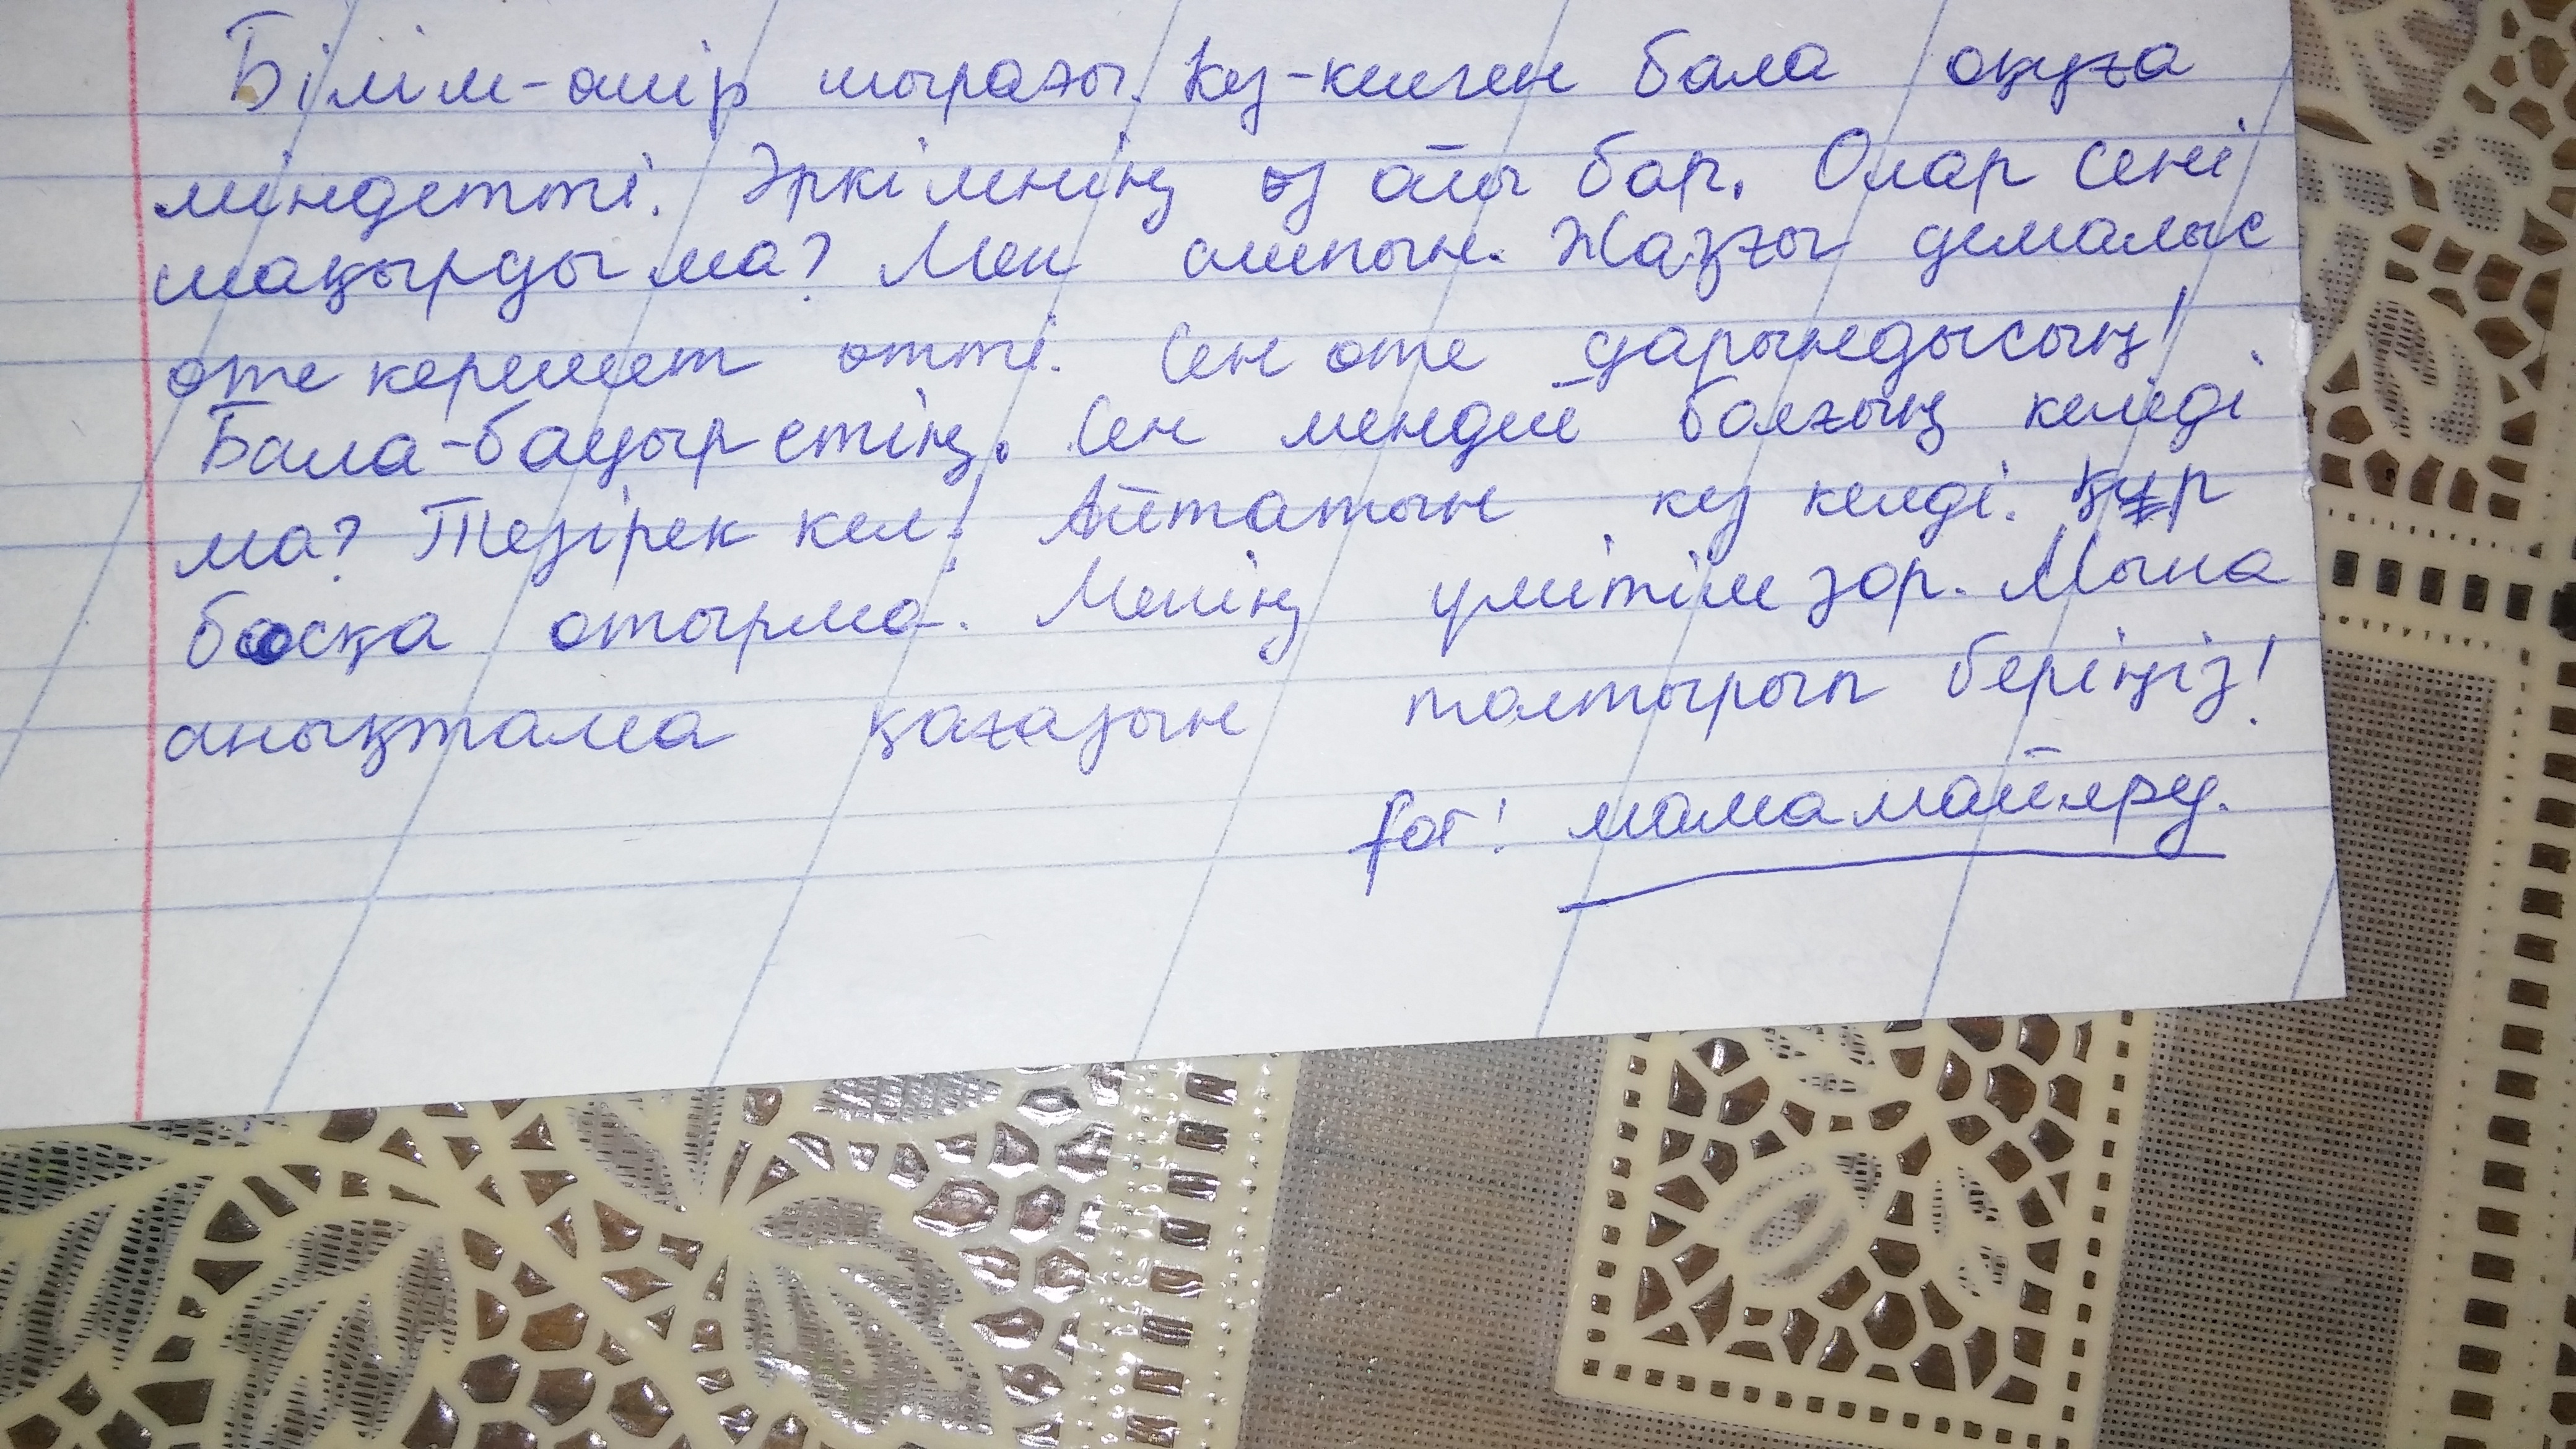 Білім-өмір шырағы. Кез-келген бала оқуға
міндетті. Әркімнің өз ойы бар. Олар сені
шақырды ма? Мен ошпын. Жазғы демалыс
өте керемет өтті. Сен өте дарындысың!
Бала-бауыр етің. Сен мендей болғың келеді
ма? Тезірек кел! Айтатын кез келді. Құр
босқа отырма. Менің үмітім зор. Мына
анықтама қағазын толтырып беріңіз!
for!